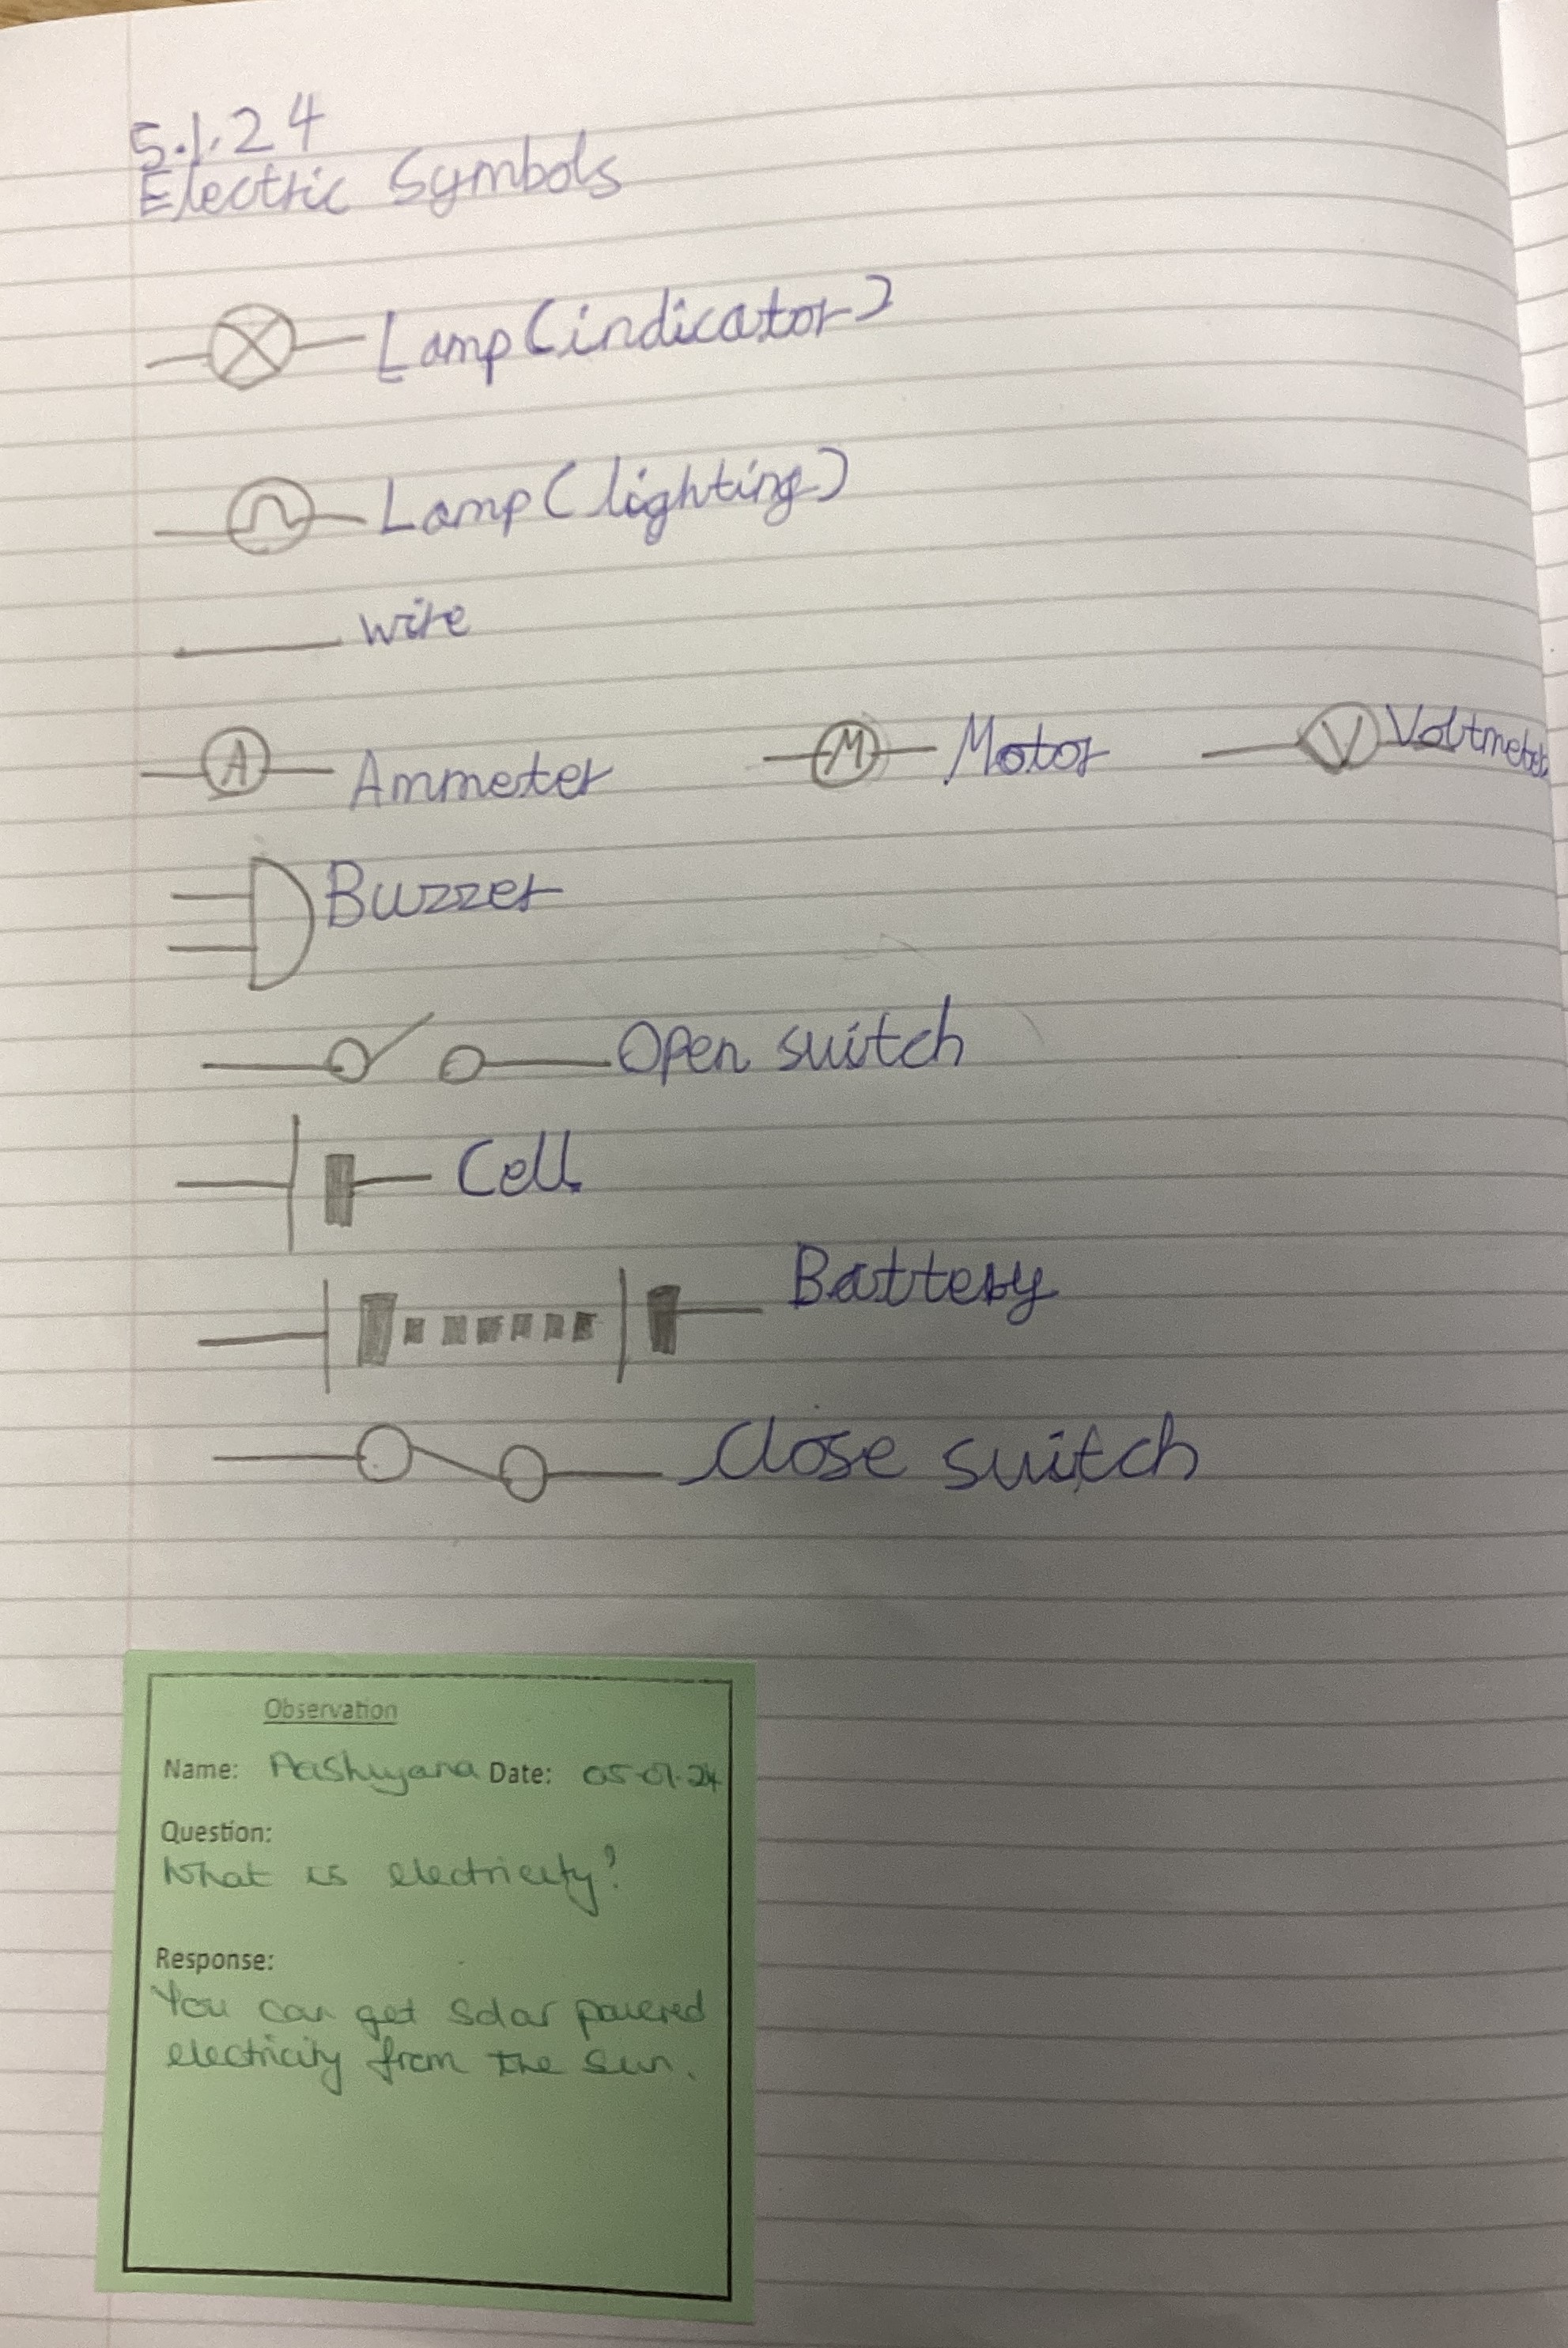 5.1.24
Electric Symbols
Lamp (indicator)
Lamp (lighting)
wire
A Ammeter M Motor V Voltmeter
Buzzer
Open suitch
Cell
Battery
Close suitch
Observation
Name: Aashiyana Date: 05-01-24
Question:
What is electricity?
Response:
You can get solar powered
electricity from the sun.